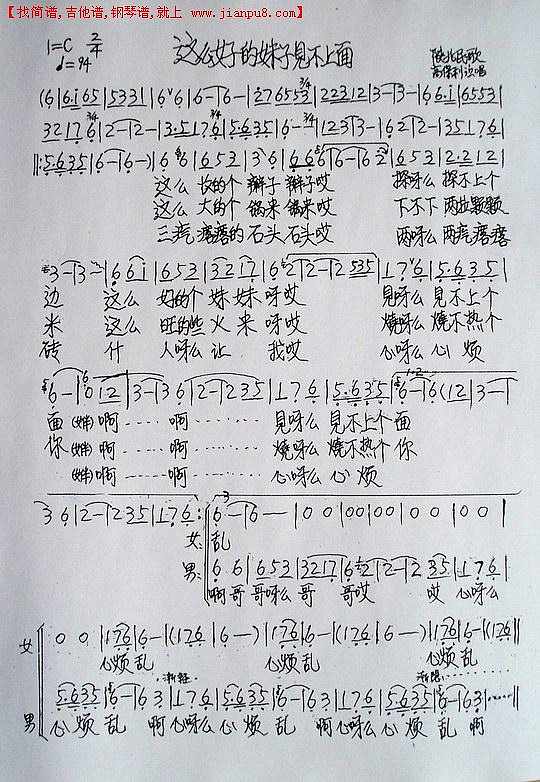 【找简谱,吉他谱,钢琴谱,就上 www.jianpu8.com】
1=C 2/4 这么好的妹子見不上面 陕北民歌
♩=94 高保利 演唱
(6 | 6·i 65 | 5331 | 6 6 | 6- | 6- | 2765 53 | 22312 | 3- | 3- | 66·i | 6553 |
3217 6 | 2- | 2- | 3·5176 | 5·635 | 6- | 123 3- | 62 2- | 35176 |
||: 5·635 | 6- | 6-) | 6 6 | 653 | 3 6 | 666 | 6- | 6- 2 | 653 | 2·212 |
这么 长的个 辫子 辫子哎 探呀么 探不上个
这么 大的个 锅来 锅来哎 下不下 两拉颗颗
三疙 瘩瘩的 石头 石头哎 两呀么 两疙瘩瘩
3- | 3- | 66i | 653 | 3217 | 62 | 2- | 2535 | 176 | 5·635 |
边 这么 好的个 妹妹 呀哎 見呀么 見不上个
米 这么 旺的些 火来 呀哎 燒呀么 燒不热个
砖 什 人呀么 让 我哎 心呀么 心烦
6- | 6012 | 3- | 36 | 2- | 235 | 176 | 5·635 | 6- | 6(12 | 3- |
面 (妹)啊 …… 啊 …… 見呀么 見不上个面
你 (妹)啊 …… 啊 …… 燒呀么 燒不热个你
(妹)啊 …… 啊 …… 心呀么 心烦
36 | 2- | 235 | 176 :|| 6- | 6- | 00 | 00 | 00 | 00 | 00 | 00 |
女: 乱
男: 66 | 653 | 3217 | 62 | 2- | 2 35 | 176 |
啊哥 哥呀么 哥 哥哎 哎 心呀么
女 00 | 176 | 6- | (176 | 6-) | 176 | 6- | (176 | 6-) | 176 | 6- | (176 ||
心烦乱 心烦乱 心烦乱
5·635 | 6- | 63 | 176 | 5·635 | 6- | 63 | 176 | 5·635 | 6- | 63 | …… ||
男 心烦 乱 啊 心呀么 心烦 乱 啊 心呀么 心烦 乱 啊